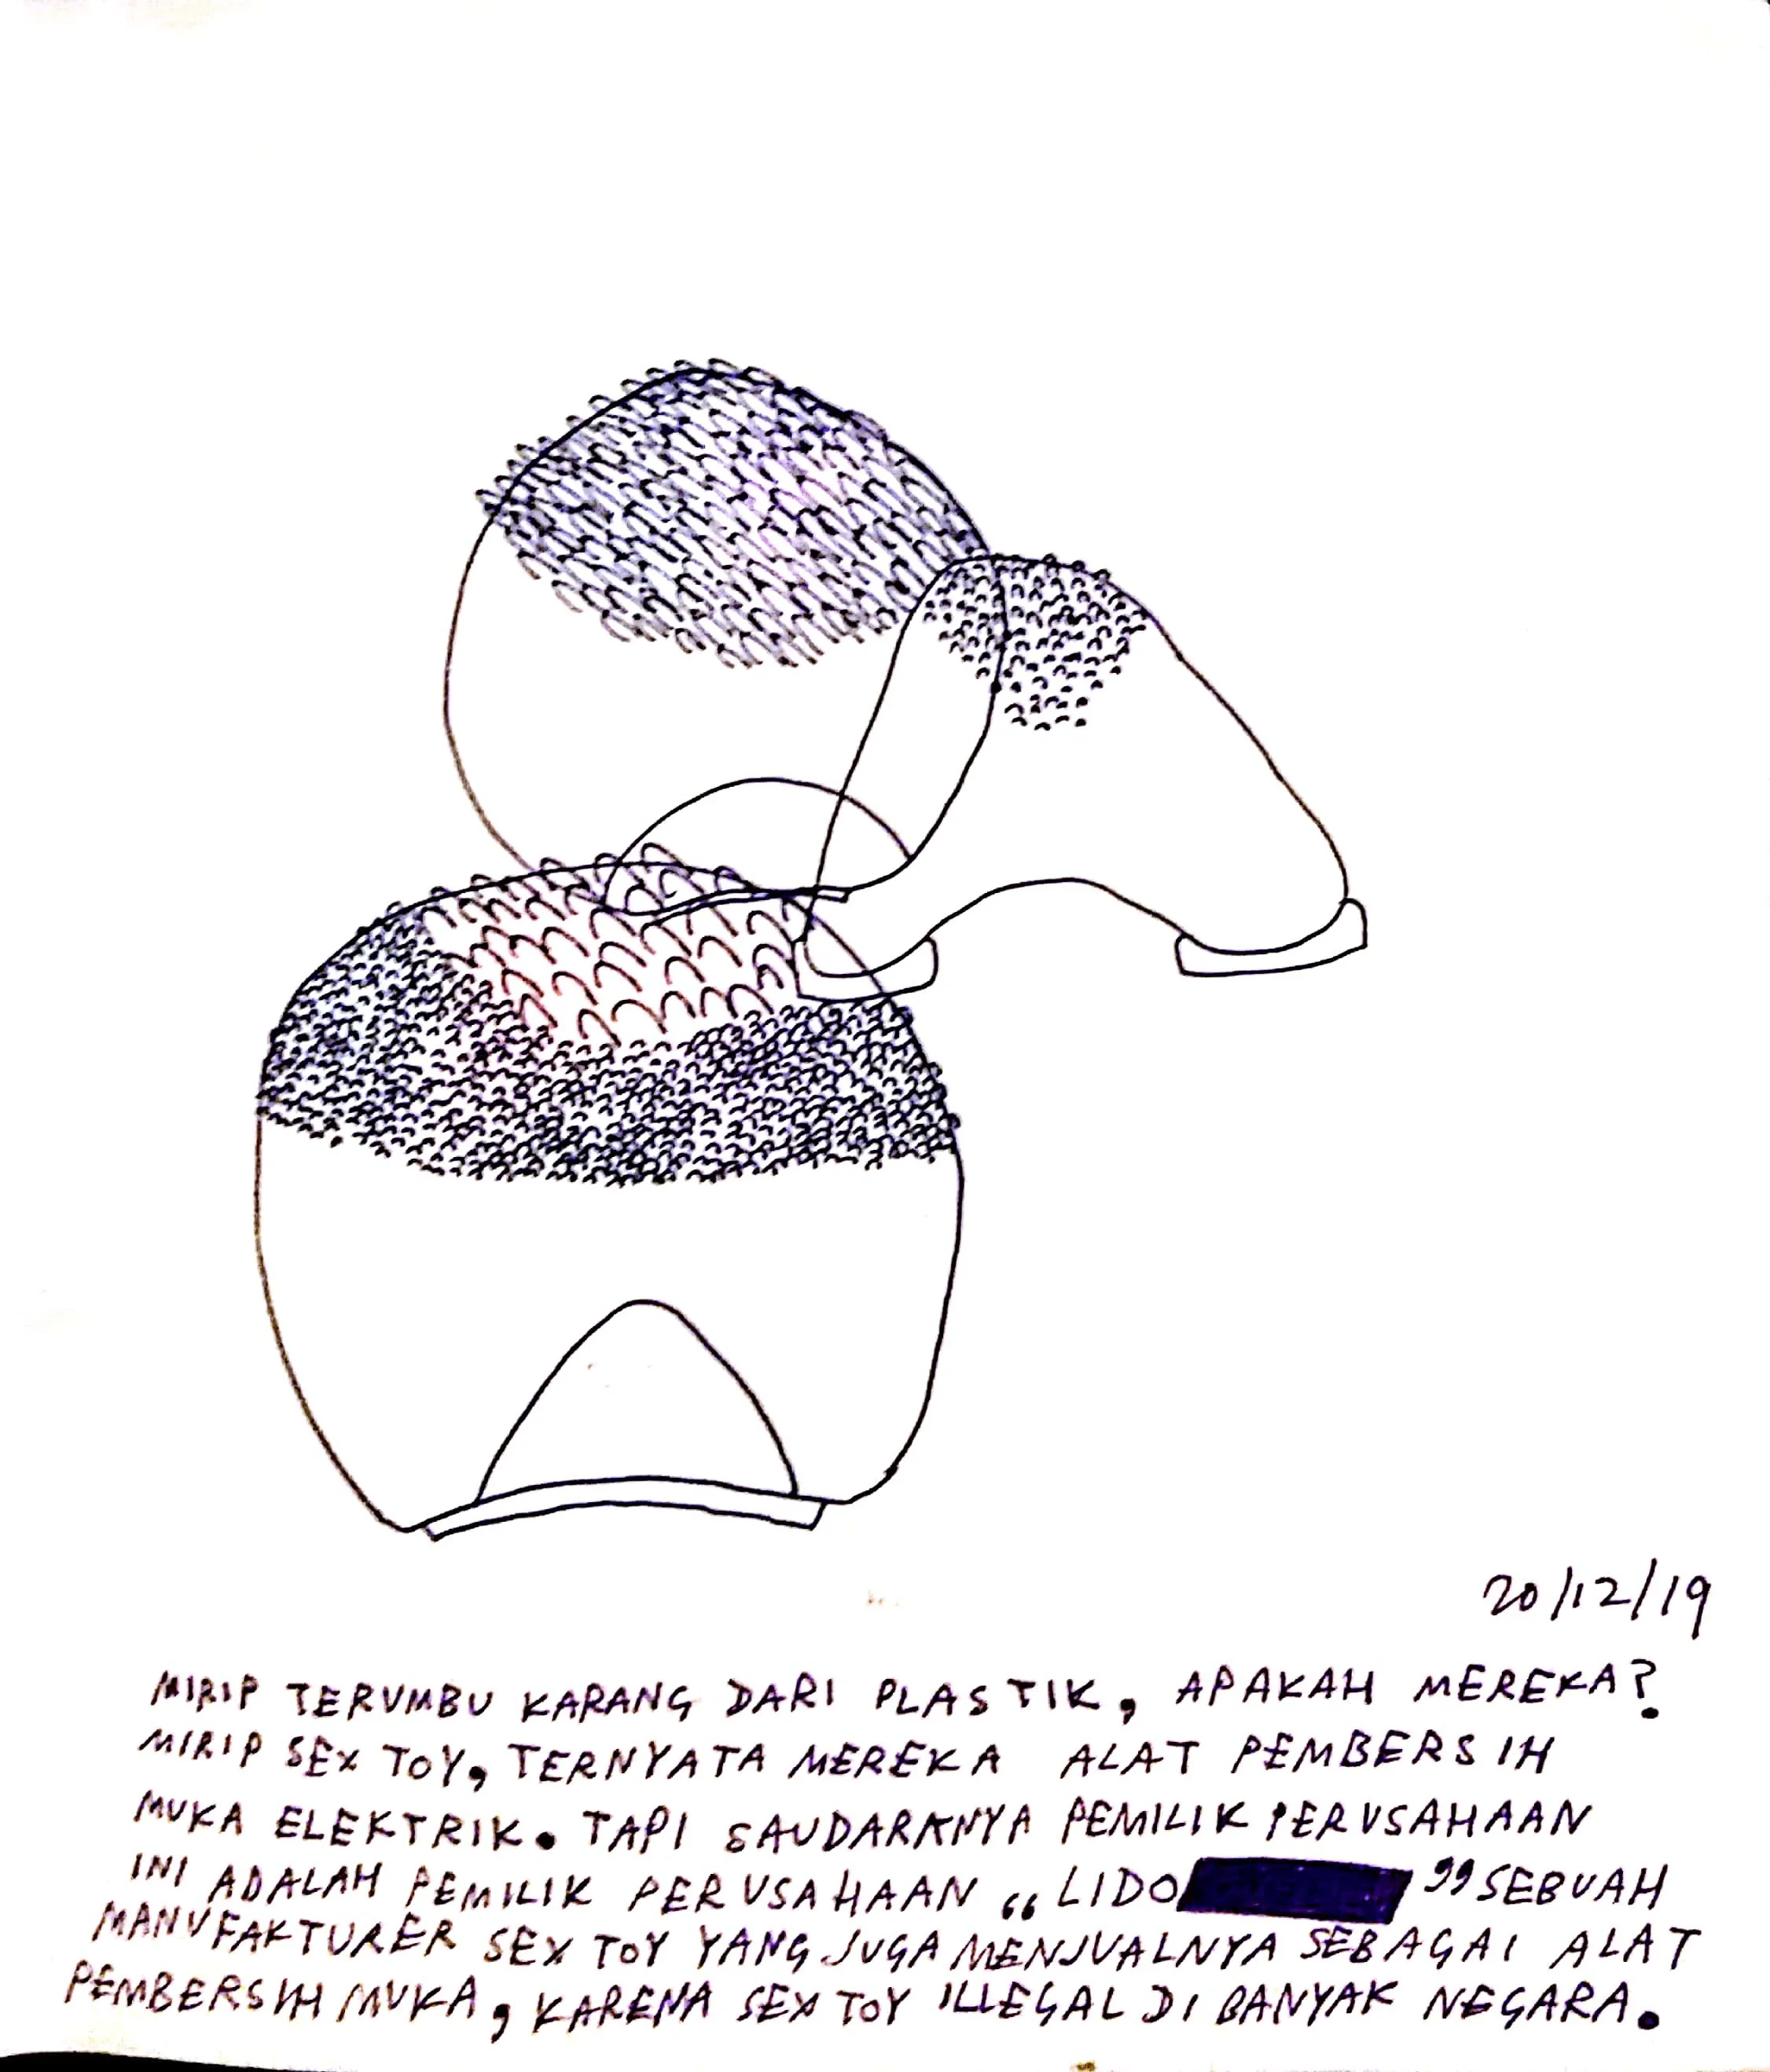 20/12/19
MIRIP TERUMBU KARANG DARI PLASTIK, APAKAH MEREKA?
MIRIP SEX TOY, TERNYATA MEREKA ALAT PEMBERSIH
MUKA ELEKTRIK. TAPI SAUDARANYA PEMILIK PERUSAHAAN
INI ADALAH PEMILIK PERUSAHAAN „LIDO ” SEBUAH
MANUFAKTURER SEX TOY YANG JUGA MENJUALNYA SEBAGAI ALAT
PEMBERSIH MUKA, KARENA SEX TOY ILLEGAL DI BANYAK NEGARA.